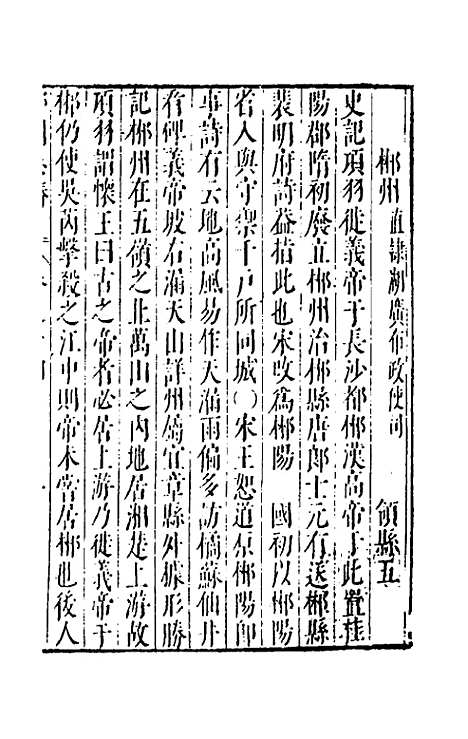 郴州 直隸湖廣布政使司 領縣五
史記項羽徙義帝于長沙都郴漢高帝于此置桂
陽郡隋初廢立郴州治郴縣唐郎士元有送郴縣
裴明府詩葢指此也宋改爲郴陽 國初以郴陽
省入與守禦千戶所同城〇宋王恕道京郴陽郎
事詩有云地高風易作天漏雨偏多訪橘蘇仙井
看碑義帝坡右漏天山詳州屬宜章縣外據形勝
記郴州在五嶺之北萬山之內地居湘楚上游故
項羽謂懷王曰古之帝者必居上游乃徙義帝于
郴仍使吳芮擊殺之江中則帝未嘗居郴也後人